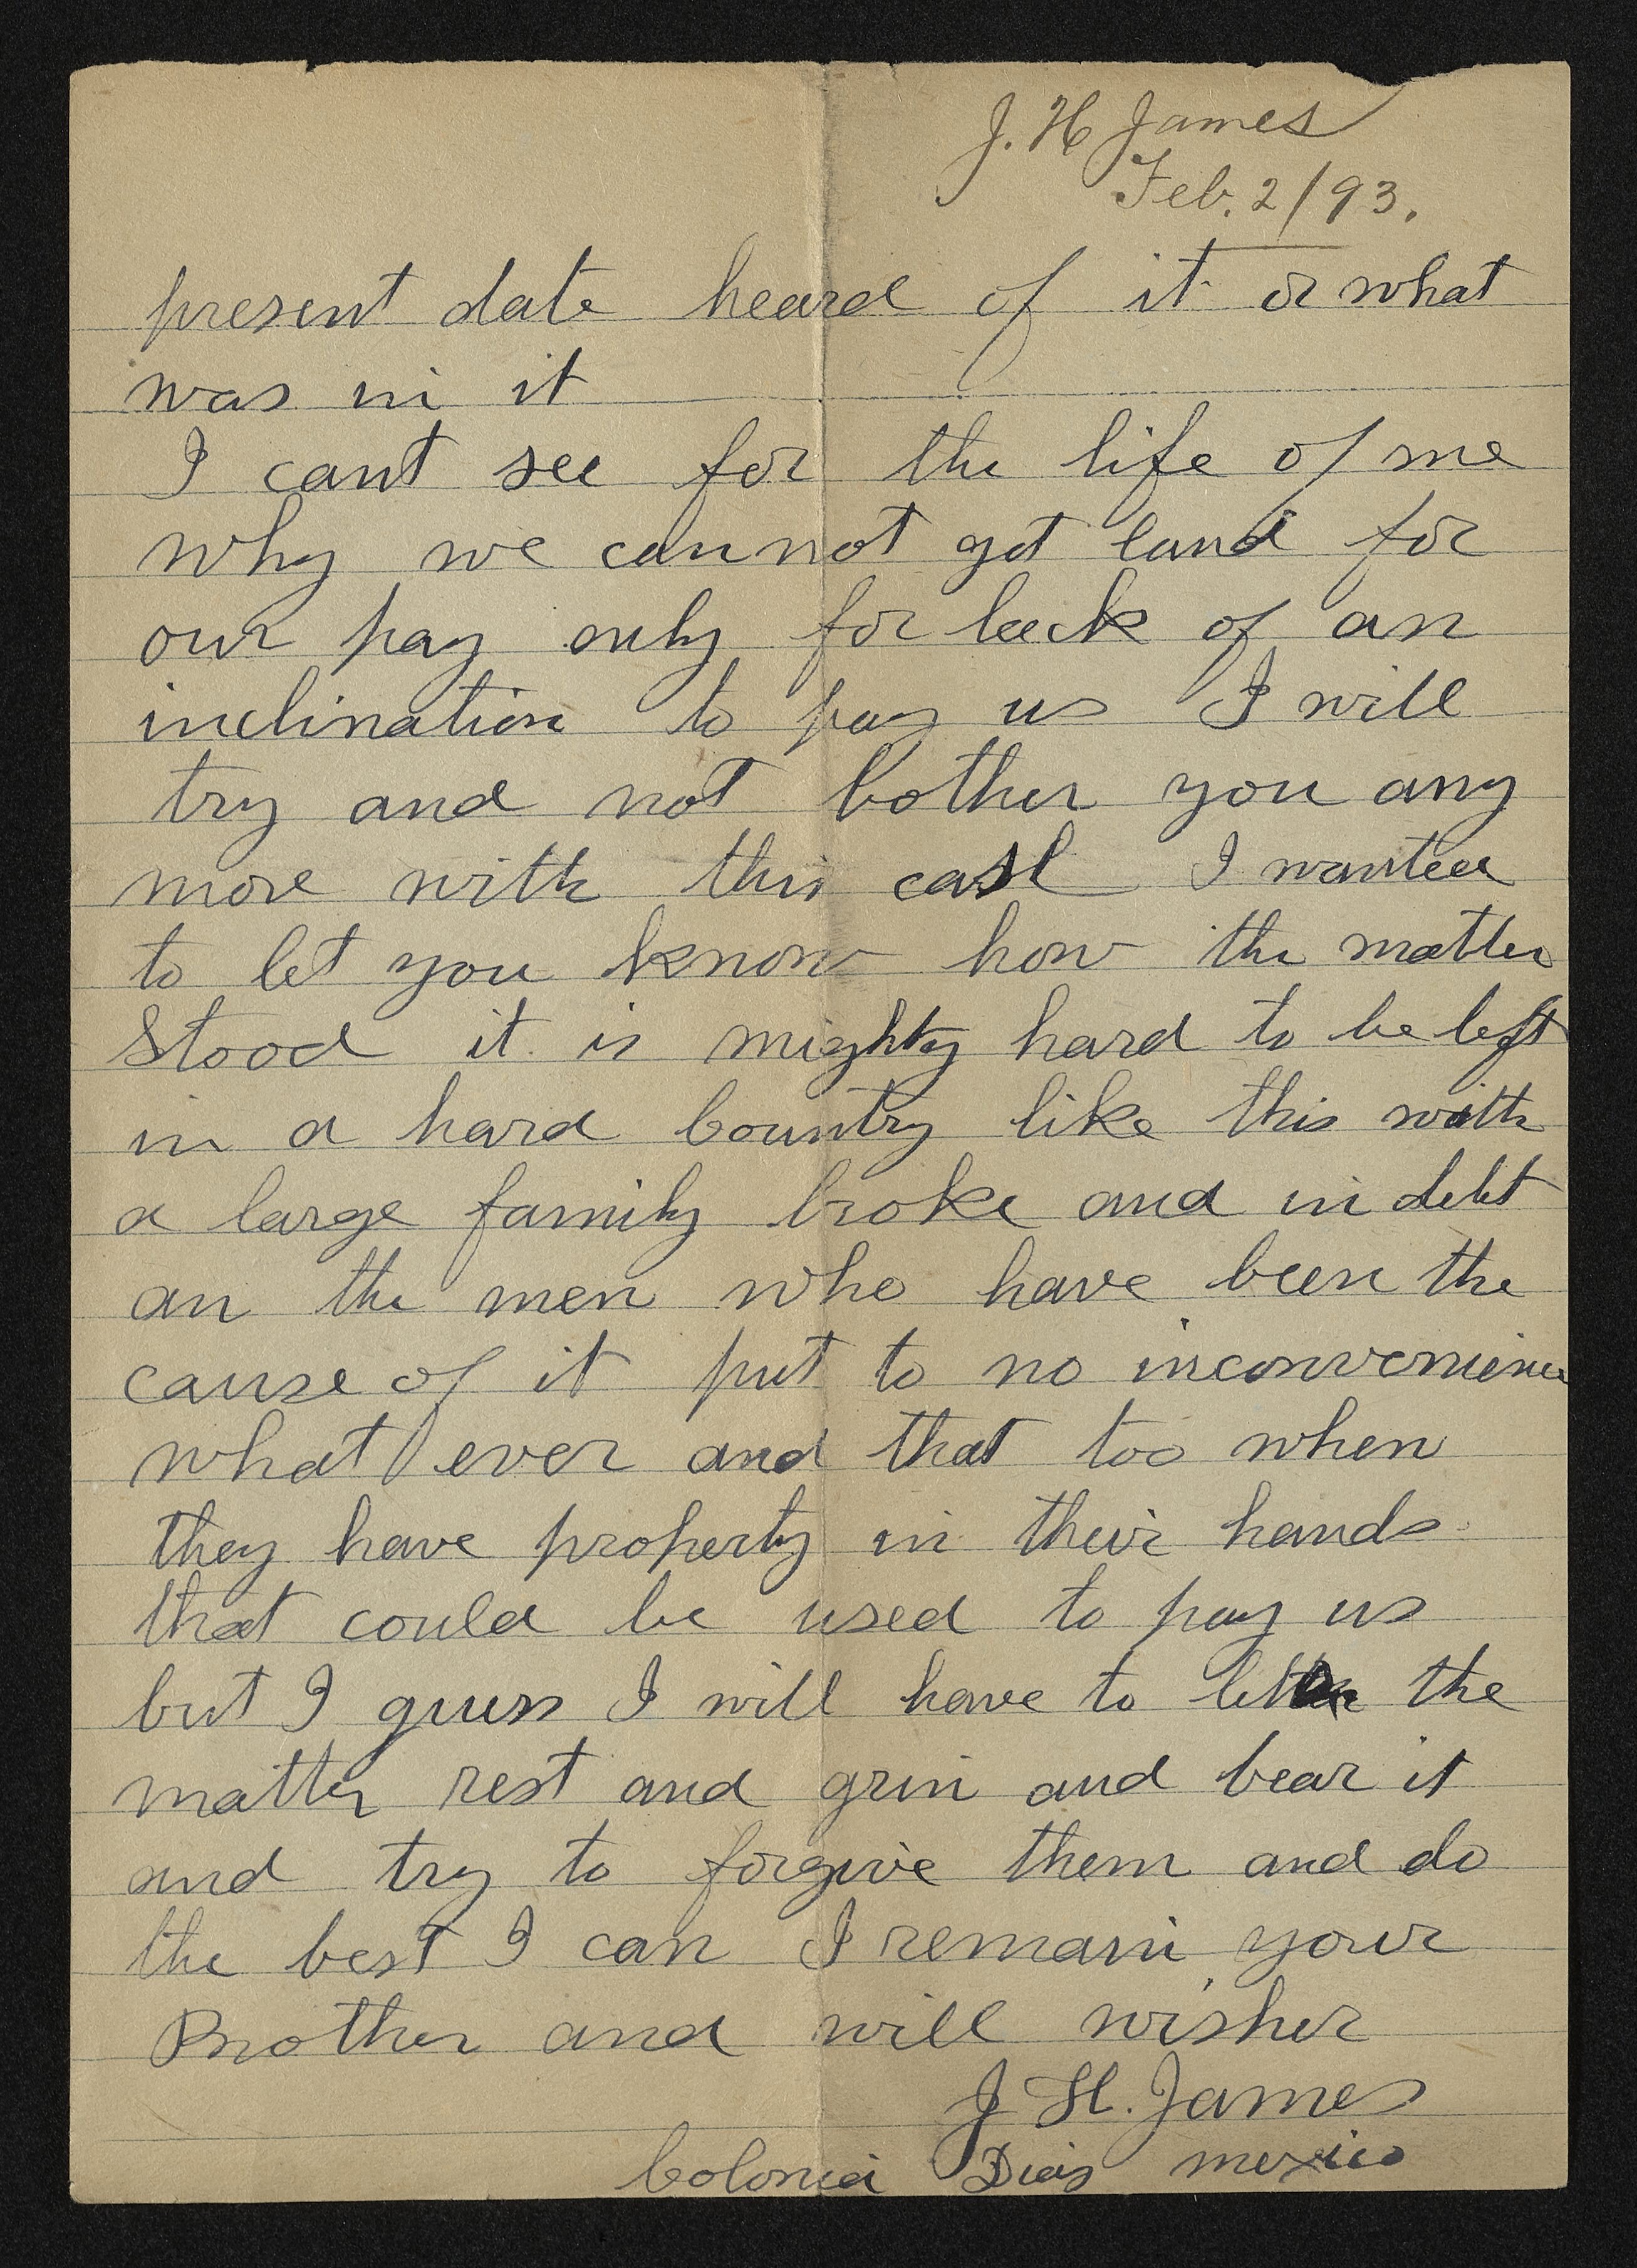 J. H James
Feb. 2/93.
present date heard of it or what
was in it
I cant see for the life of me
why we cannot get land for
our pay only for lack of an
inclination to pay us I will
try and not bother you any
more with this case I wanted
to let you know how the matter
Stood it is mighty hard to be left
in a hard Country like this with
a large family broke and in debt
an the men who have been the
cause of it put to no inconvenience
what ever and that too when
they have property in their hands
that could be used to pay us
but I guess I will have to let the
matter rest and grin and bear it
and try to forgive them and do
the best I can I remain your
Brother and will wisher
J H. James
Colonia Dias mexico